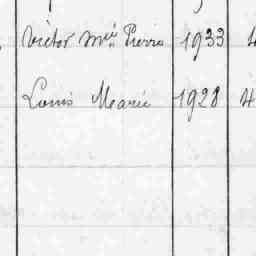 Victor Mie Pierre 1933 4
Louis Marie 1928 4